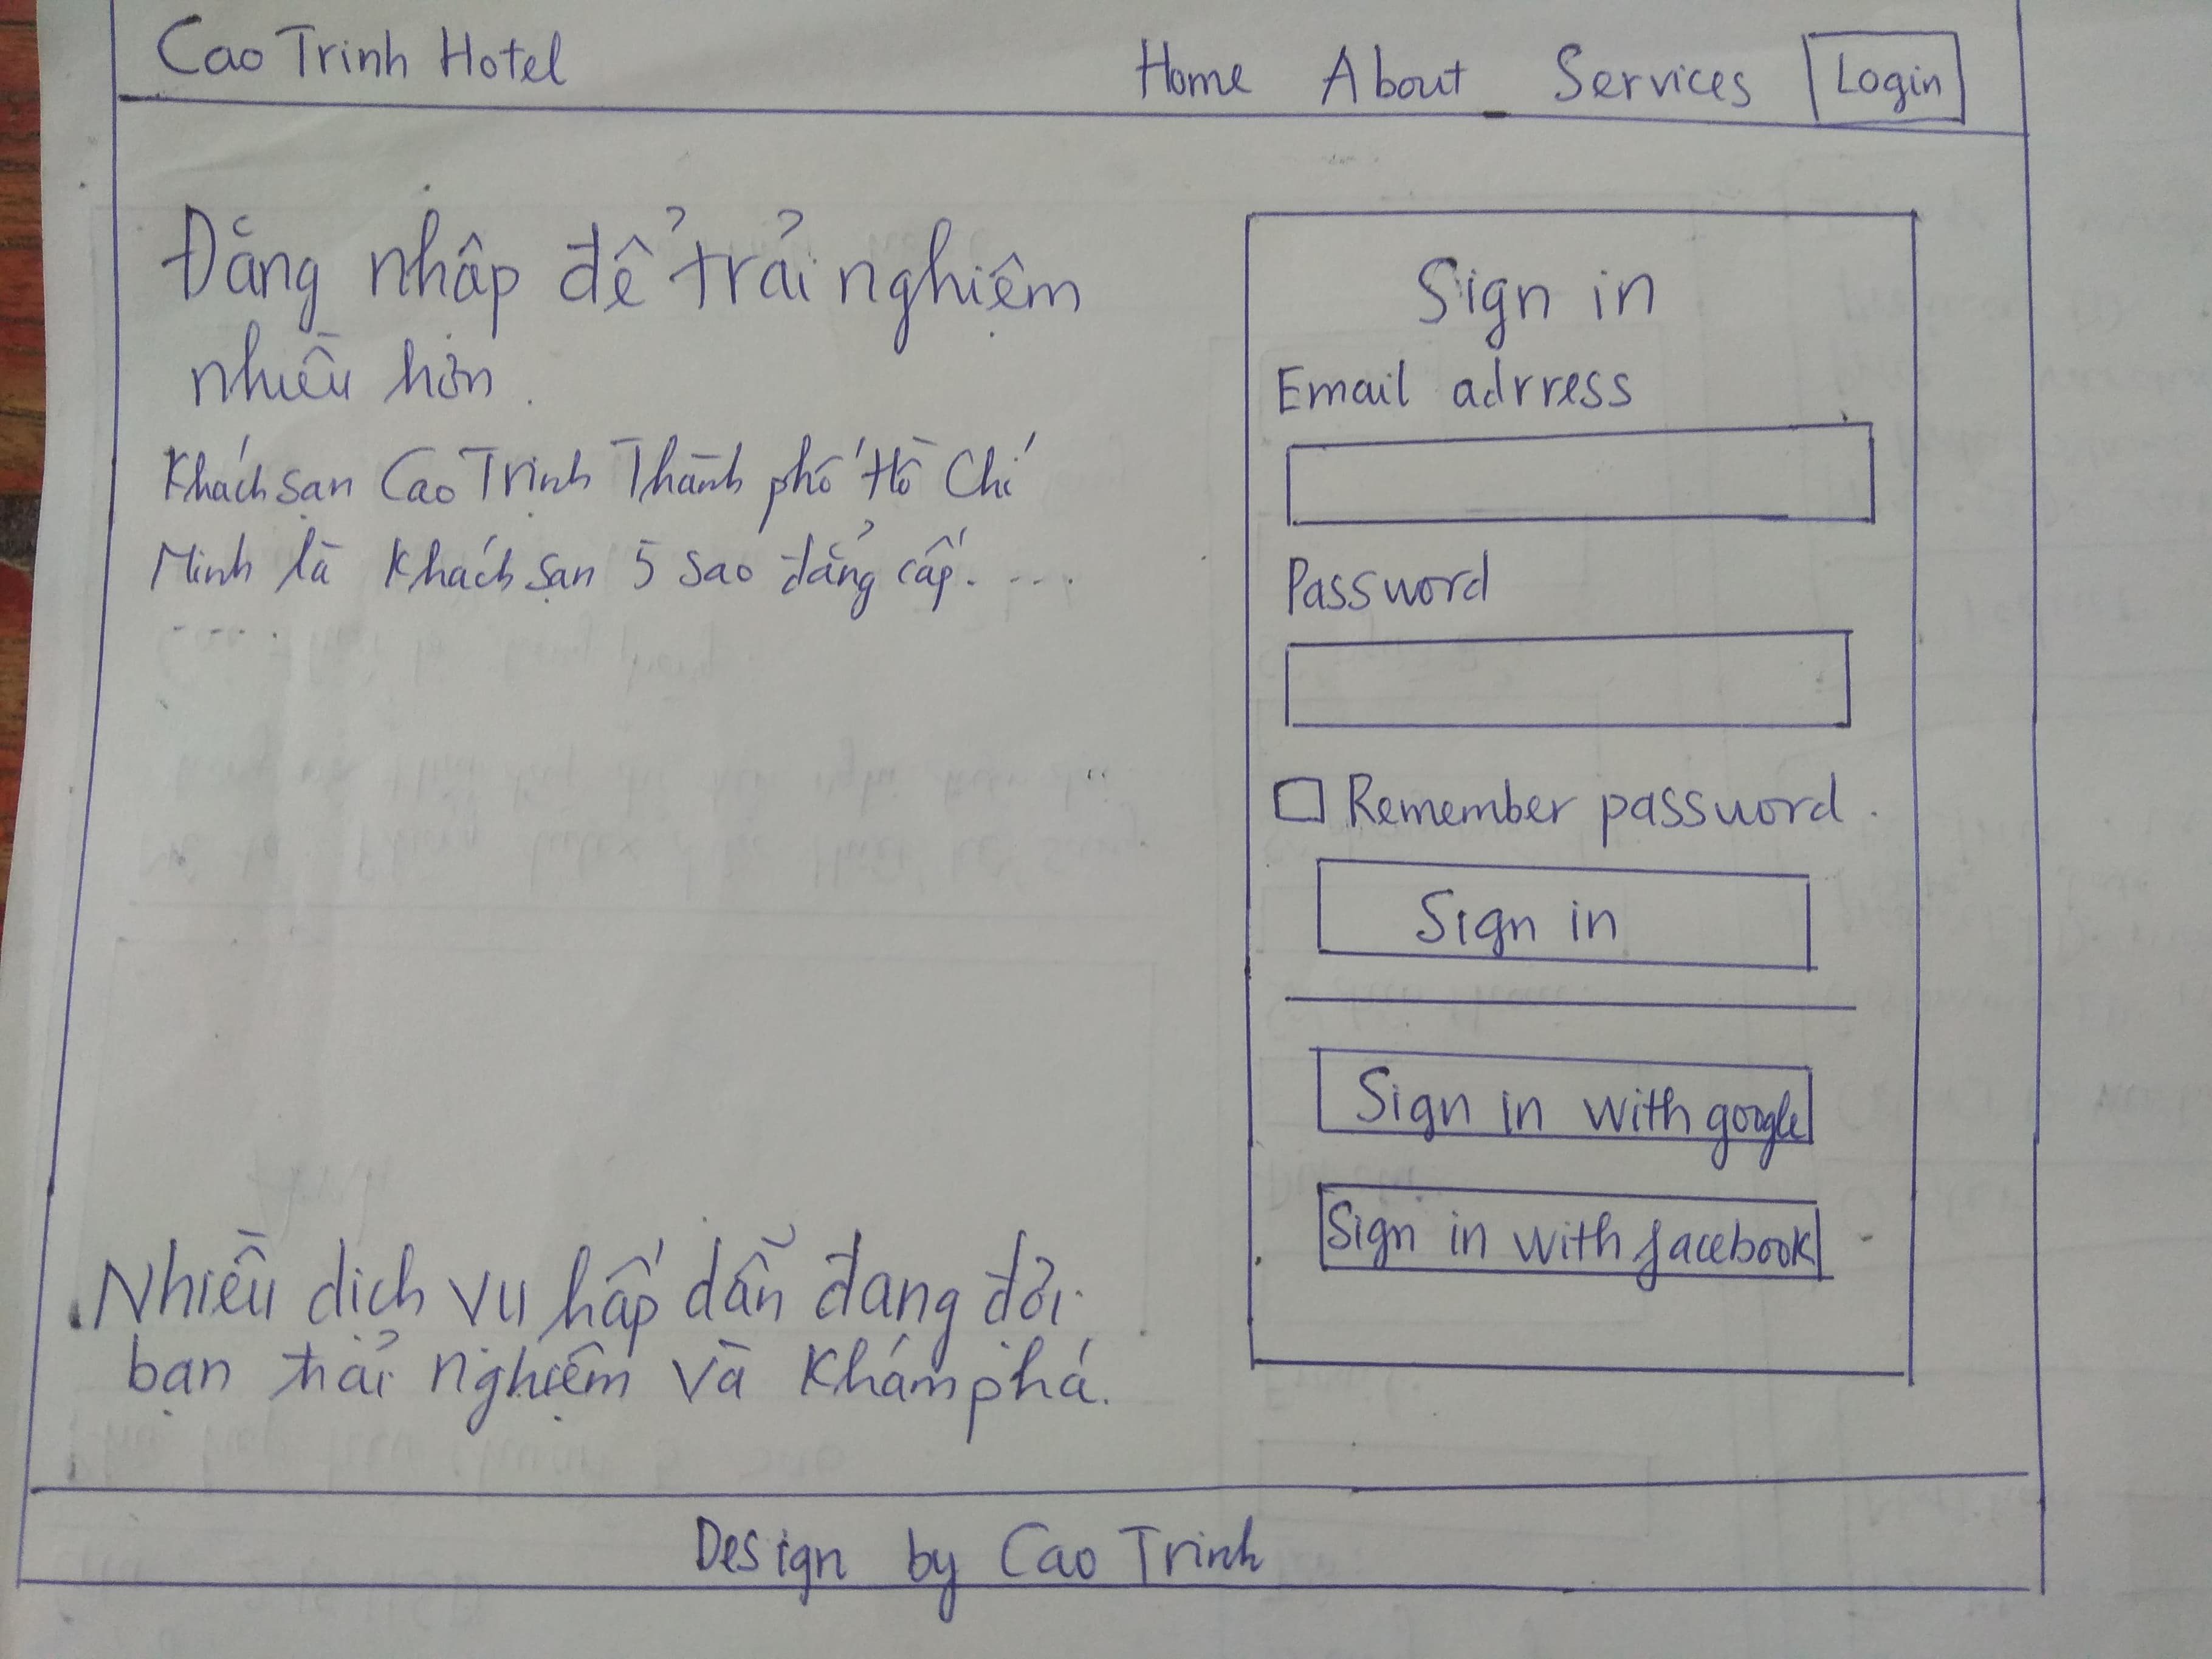 Cao Trinh Hotel
Home About Services Login
Đăng nhập để trải nghiệm
nhiều hơn.
Khách sạn Cao Trịnh Thành phố Hồ Chí
Minh là khách sạn 5 sao đẳng cấp. ...
....
Nhiều dịch vụ hấp dẫn đang đợi
bạn trải nghiệm và khám phá.
Sign in
Email adrress
Password
Remember password.
Sign in
Sign in with google
Sign in with facebook
Design by Cao Trinh